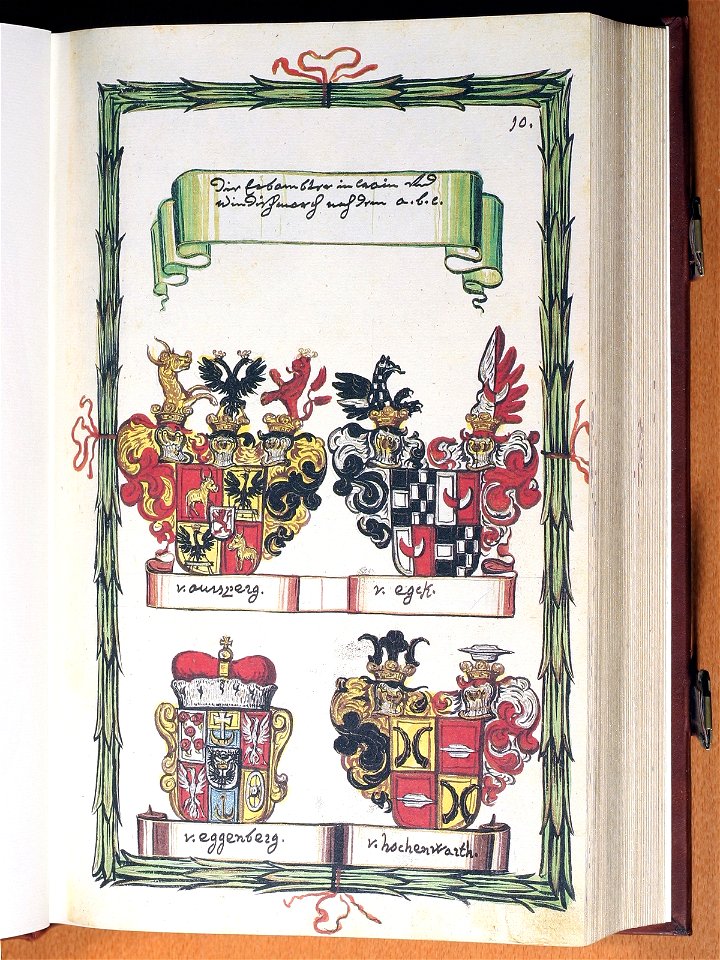 10.
Die Erbämbter in Crain und
Windischmarch nach dem a.b.c.
v. aursperg.
v. egck.
v. eggenberg.
v. hochenwarth.